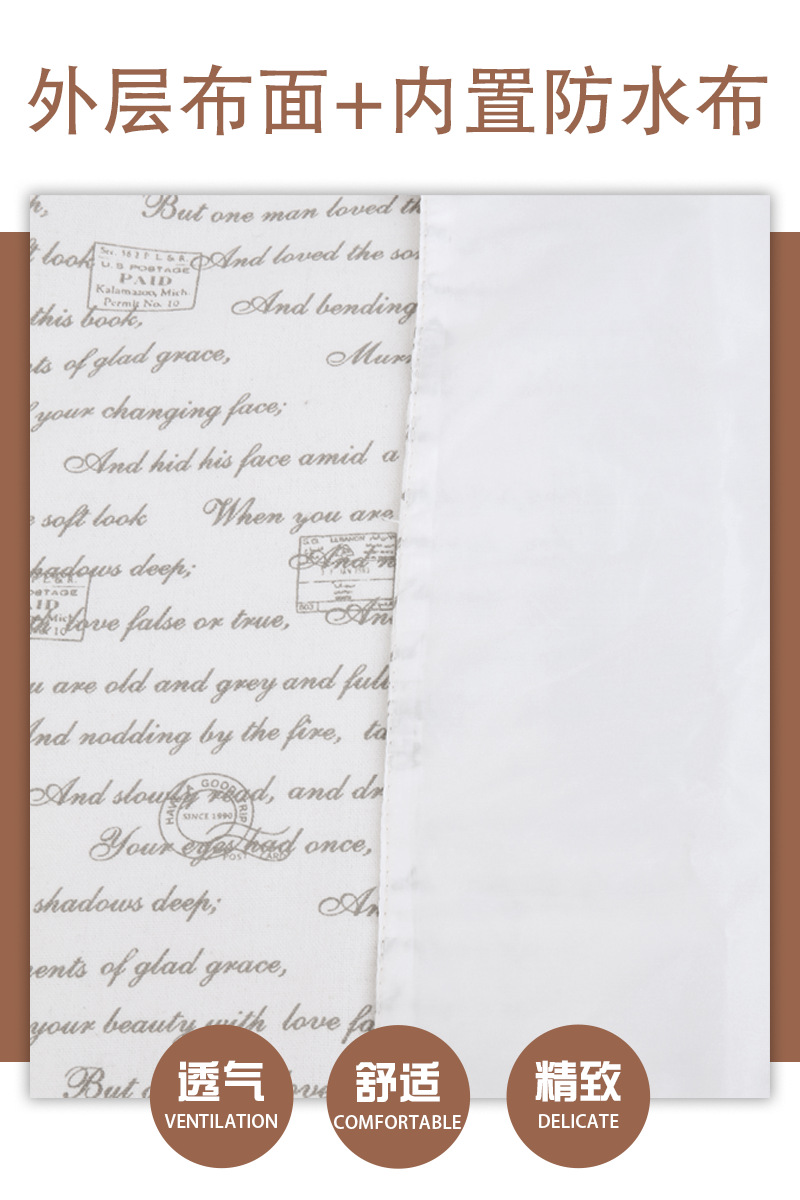 外层布面+内置防水布
But one man loved
look
And loved the
Ser. 563 P. L. & R.
U.S POSTAGE
PAID
Kalamazoo, Mich.
Permit No. 10
And bending
this book,
of glad grace,
your changing face;
And hid his face amid a
soft look
When you are
shadows deep;
And
love false or true,
are old and grey and full
And nodding by the fire,
And slowly read, and
HAVE A GOOD TRIP
SINCE 1990
POST CARD
Your eyes had once,
shadows deep;
of glad grace,
your beauty with love
But
透气
VENTILATION
舒适
COMFORTABLE
精致
DELICATE